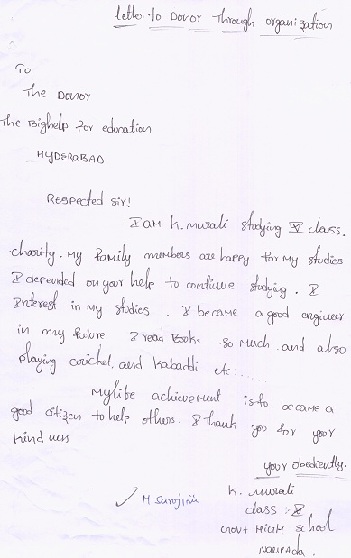 letter to Donor Through organization
To
The Donor
The Bighelp For edonation
HYDERABAD
Respected Sir!
I am K. Murali studying X class.
charity. My family members are happy for my studies
I depended on your help to continue studying. I
Interest in my studies. I became a good engineer
in my future I read books so much and also
playing cricket, and Kabaddi etc....
My life achievement is to became a
good citizen to help others. I thank you for your
kindness
your obediently.
K. Murali
class: X
GOVT HIGH School
✓ M Sarojini